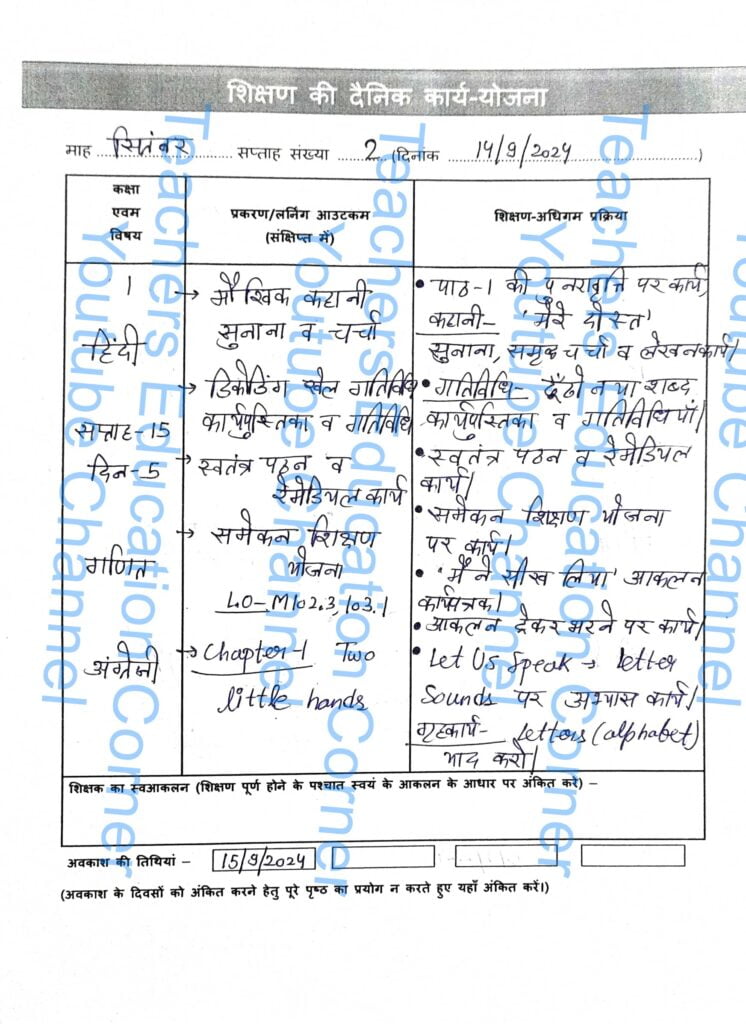 शिक्षण की दैनिक कार्य-योजना
माह सितंबर सप्ताह संख्या 2 (दिनांक 14/9/2024)
कक्षा
एवम
विषय
प्रकरण/लर्निंग आउटकम
(संक्षिप्त में)
शिक्षण-अधिगम प्रक्रिया
1
हिंदी
सप्ताह-15
दिन-5
गणित
अंग्रेजी
→ मौखिक कहानी
सुनाना व चर्चा
→ डिकोडिंग खेल गतिविधि
कार्यपुस्तिका व गतिविधि
→ स्वतंत्र पठन व
रेमेडियल कार्य
→ समेकन शिक्षण
योजना
LO-M102.3,103.1
→ Chapter-1 Two
little hands
• पाठ-1 की पुनरावृत्ति पर कार्य,
कहानी- 'मेरे दोस्त'
सुनाना, समूह चर्चा व लेखनकार्य।
• गतिविधि- ढूँढो नया शब्द
कार्यपुस्तिका व गतिविधियाँ।
• स्वतंत्र पठन व रेमेडियल
कार्य।
• समेकन शिक्षण योजना
पर कार्य।
• 'मैंने सीख लिया' आकलन
कार्यपत्रक।
• आकलन ट्रेकर भरने पर कार्य।
• Let Us Speak → letter
Sounds पर अभ्यास कार्य।
गृहकार्य- Letters (alphabet)
याद करो।
शिक्षक का स्वआकलन (शिक्षण पूर्ण होने के पश्चात स्वयं के आकलन के आधार पर अंकित करे) –
अवकाश की तिथियां – 15/9/2024
(अवकाश के दिवसों को अंकित करने हेतु पूरे पृष्ठ का प्रयोग न करते हुए यहाँ अंकित करें।)
Teachers Education Corner
Youtube Channel
Teachers Education Corner
Youtube Channel
Teachers Education Corner
Youtube Channel